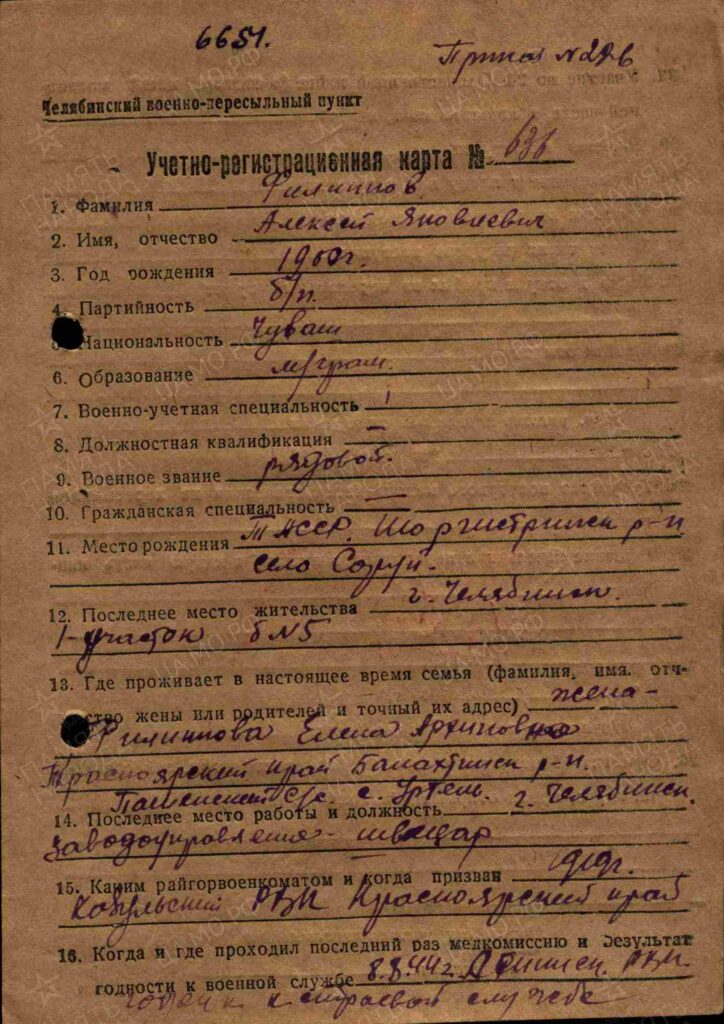 6651.
Челябинский военно-пересыльный пункт
Учетно-регистрационная карта № 636
1. Фамилия Филиппов
2. Имя, отчество Алексей Яковлевич
3. Год рождения 1900г.
4. Партийность б/п.
Национальность Чуваш
6. Образование м/грам.
7. Военно-учетная специальность
8. Должностная квалификация —
9. Военное звание рядовой.
10. Гражданская специальность —
11. Место рождения ТАССР. р-н
село
12. Последнее место жительства г. Челябинск.
1-участок б№5
13. Где проживает в настоящее время семья (фамилия, имя, отче-
ство жены или родителей и точный их адрес) жена-
Филиппова Елена Архиповна
Красноярский край Балахтинск р-н.
с/с. с.
14. Последнее место работы и должность г. Челябинск.
Заводоуправления - швецар
15. Каким райгорвоенкоматом и когда призван 1919г.
РВК Красноярский край
16. Когда и где проходил последний раз медкомиссию и результат
годности к военной службе 8.8.44г. РВК.
годен к строевой службе